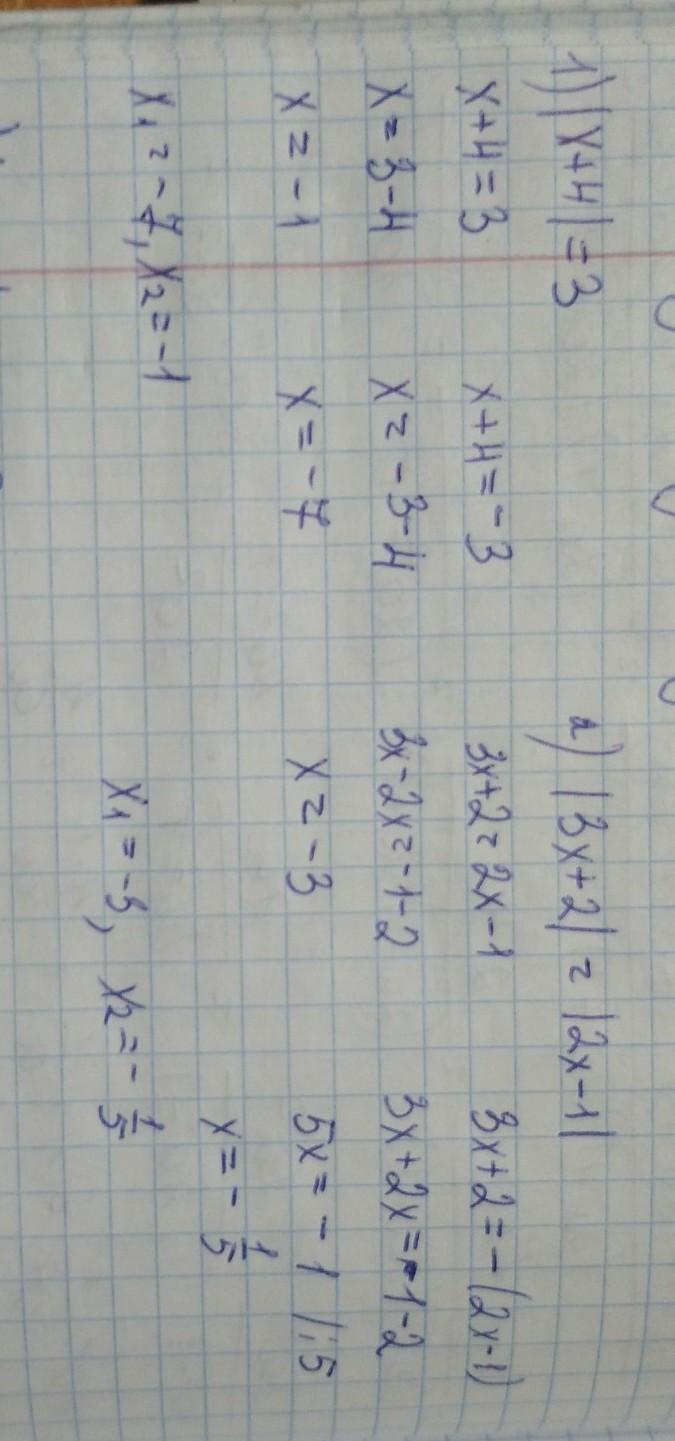 1) |x+4| = 3
x+4 = 3    x+4 = -3
x = 3-4    x = -3-4
x = -1    x = -7
x₁ = -7, x₂ = -1
2) |3x+2| = |2x-1|
3x+2 = 2x-1    3x+2 = -(2x-1)
3x-2x = -1-2    3x+2x = -1-2
x = -3    5x = -1 |:5
x = -1/5
x₁ = -3, x₂ = -1/5